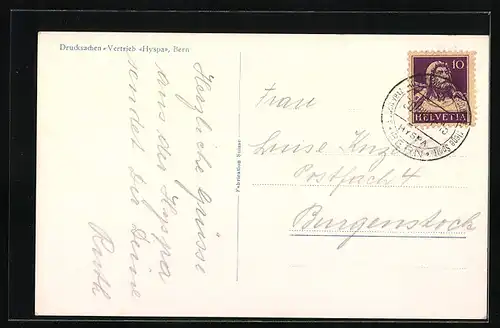 Drucksachen-Vertrieb «Hyspa», Bern
Herzliche Grüsse
aus der Hyspa
sendet Dir Deine
Ruth
Fabrication Suisse
10
HELVETIA
HYSPA
BERN
Frau
Luise Kunz
Postfach 4
Burgenstock